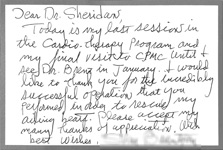 Dear Dr. Sheridan,
Today is my last session in
the Cardio-therapy Program and
my final visit to CPMC until I
see Dr. in January. I would
like to thank you for the incredibly
successful operation that you
performed in order to rescue my
aching heart. Please accept my
many thanks of appreciation. With
best wishes.